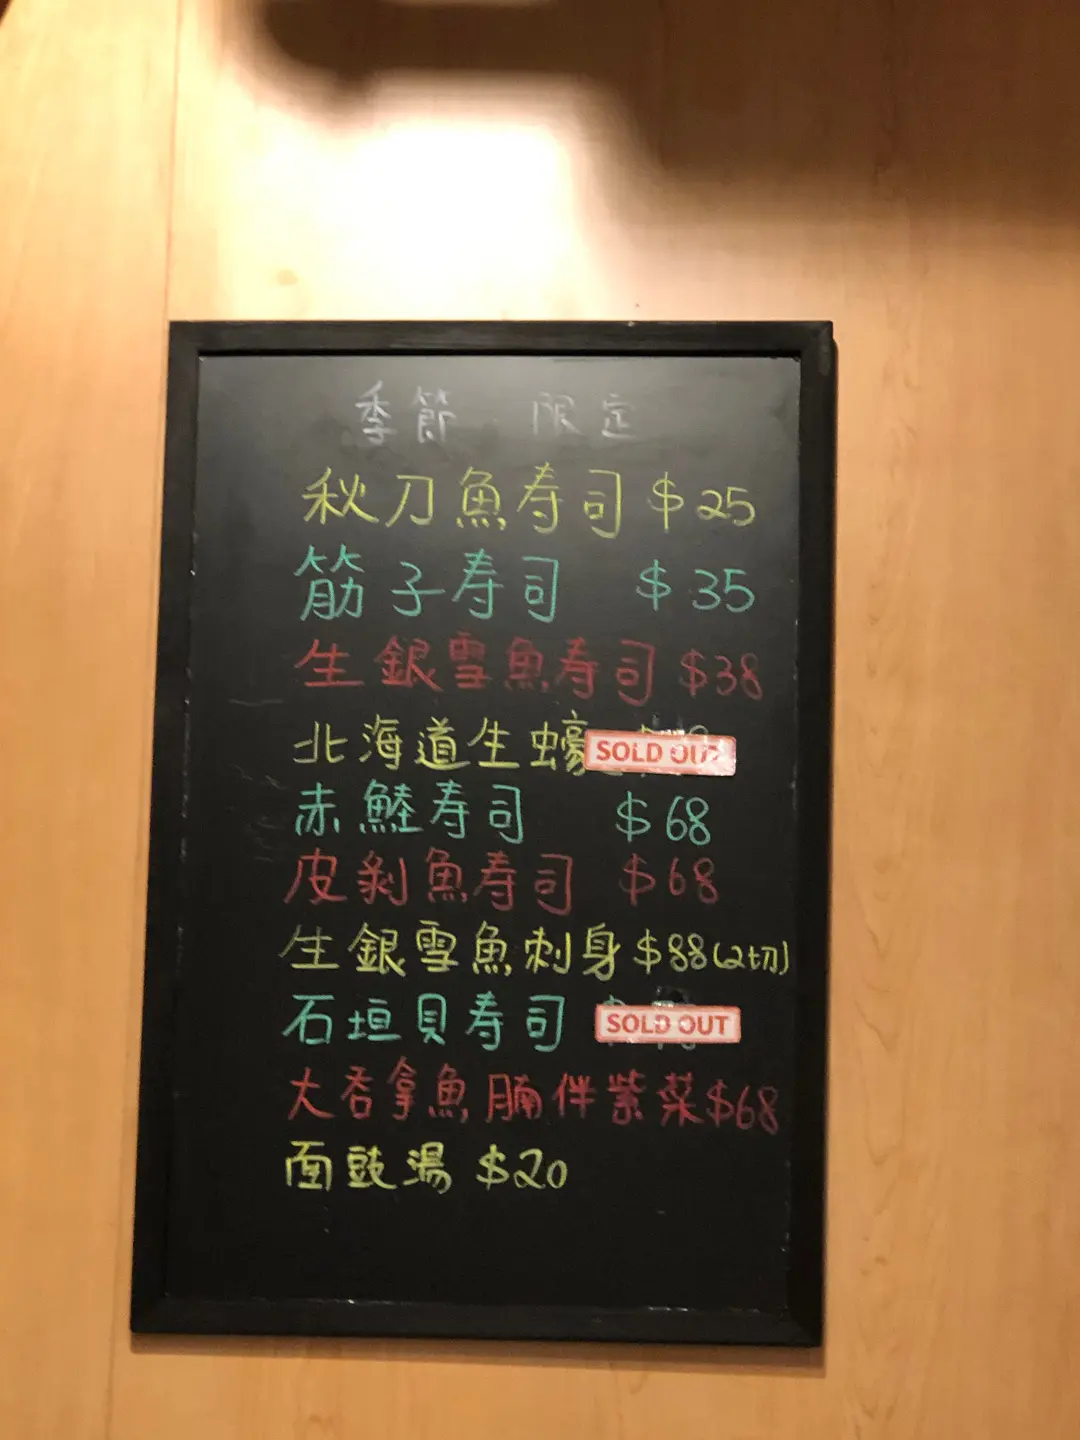 季節 限定
秋刀魚寿司 $25
筋子寿司 $35
生銀雪魚寿司 $38
北海道生蠔 SOLD OUT
赤鯥寿司 $68
皮剝魚寿司 $68
生銀雪魚刺身 $88(2切)
石垣貝寿司 SOLD OUT
大吞拿魚腩伴紫菜 $68
面豉湯 $20